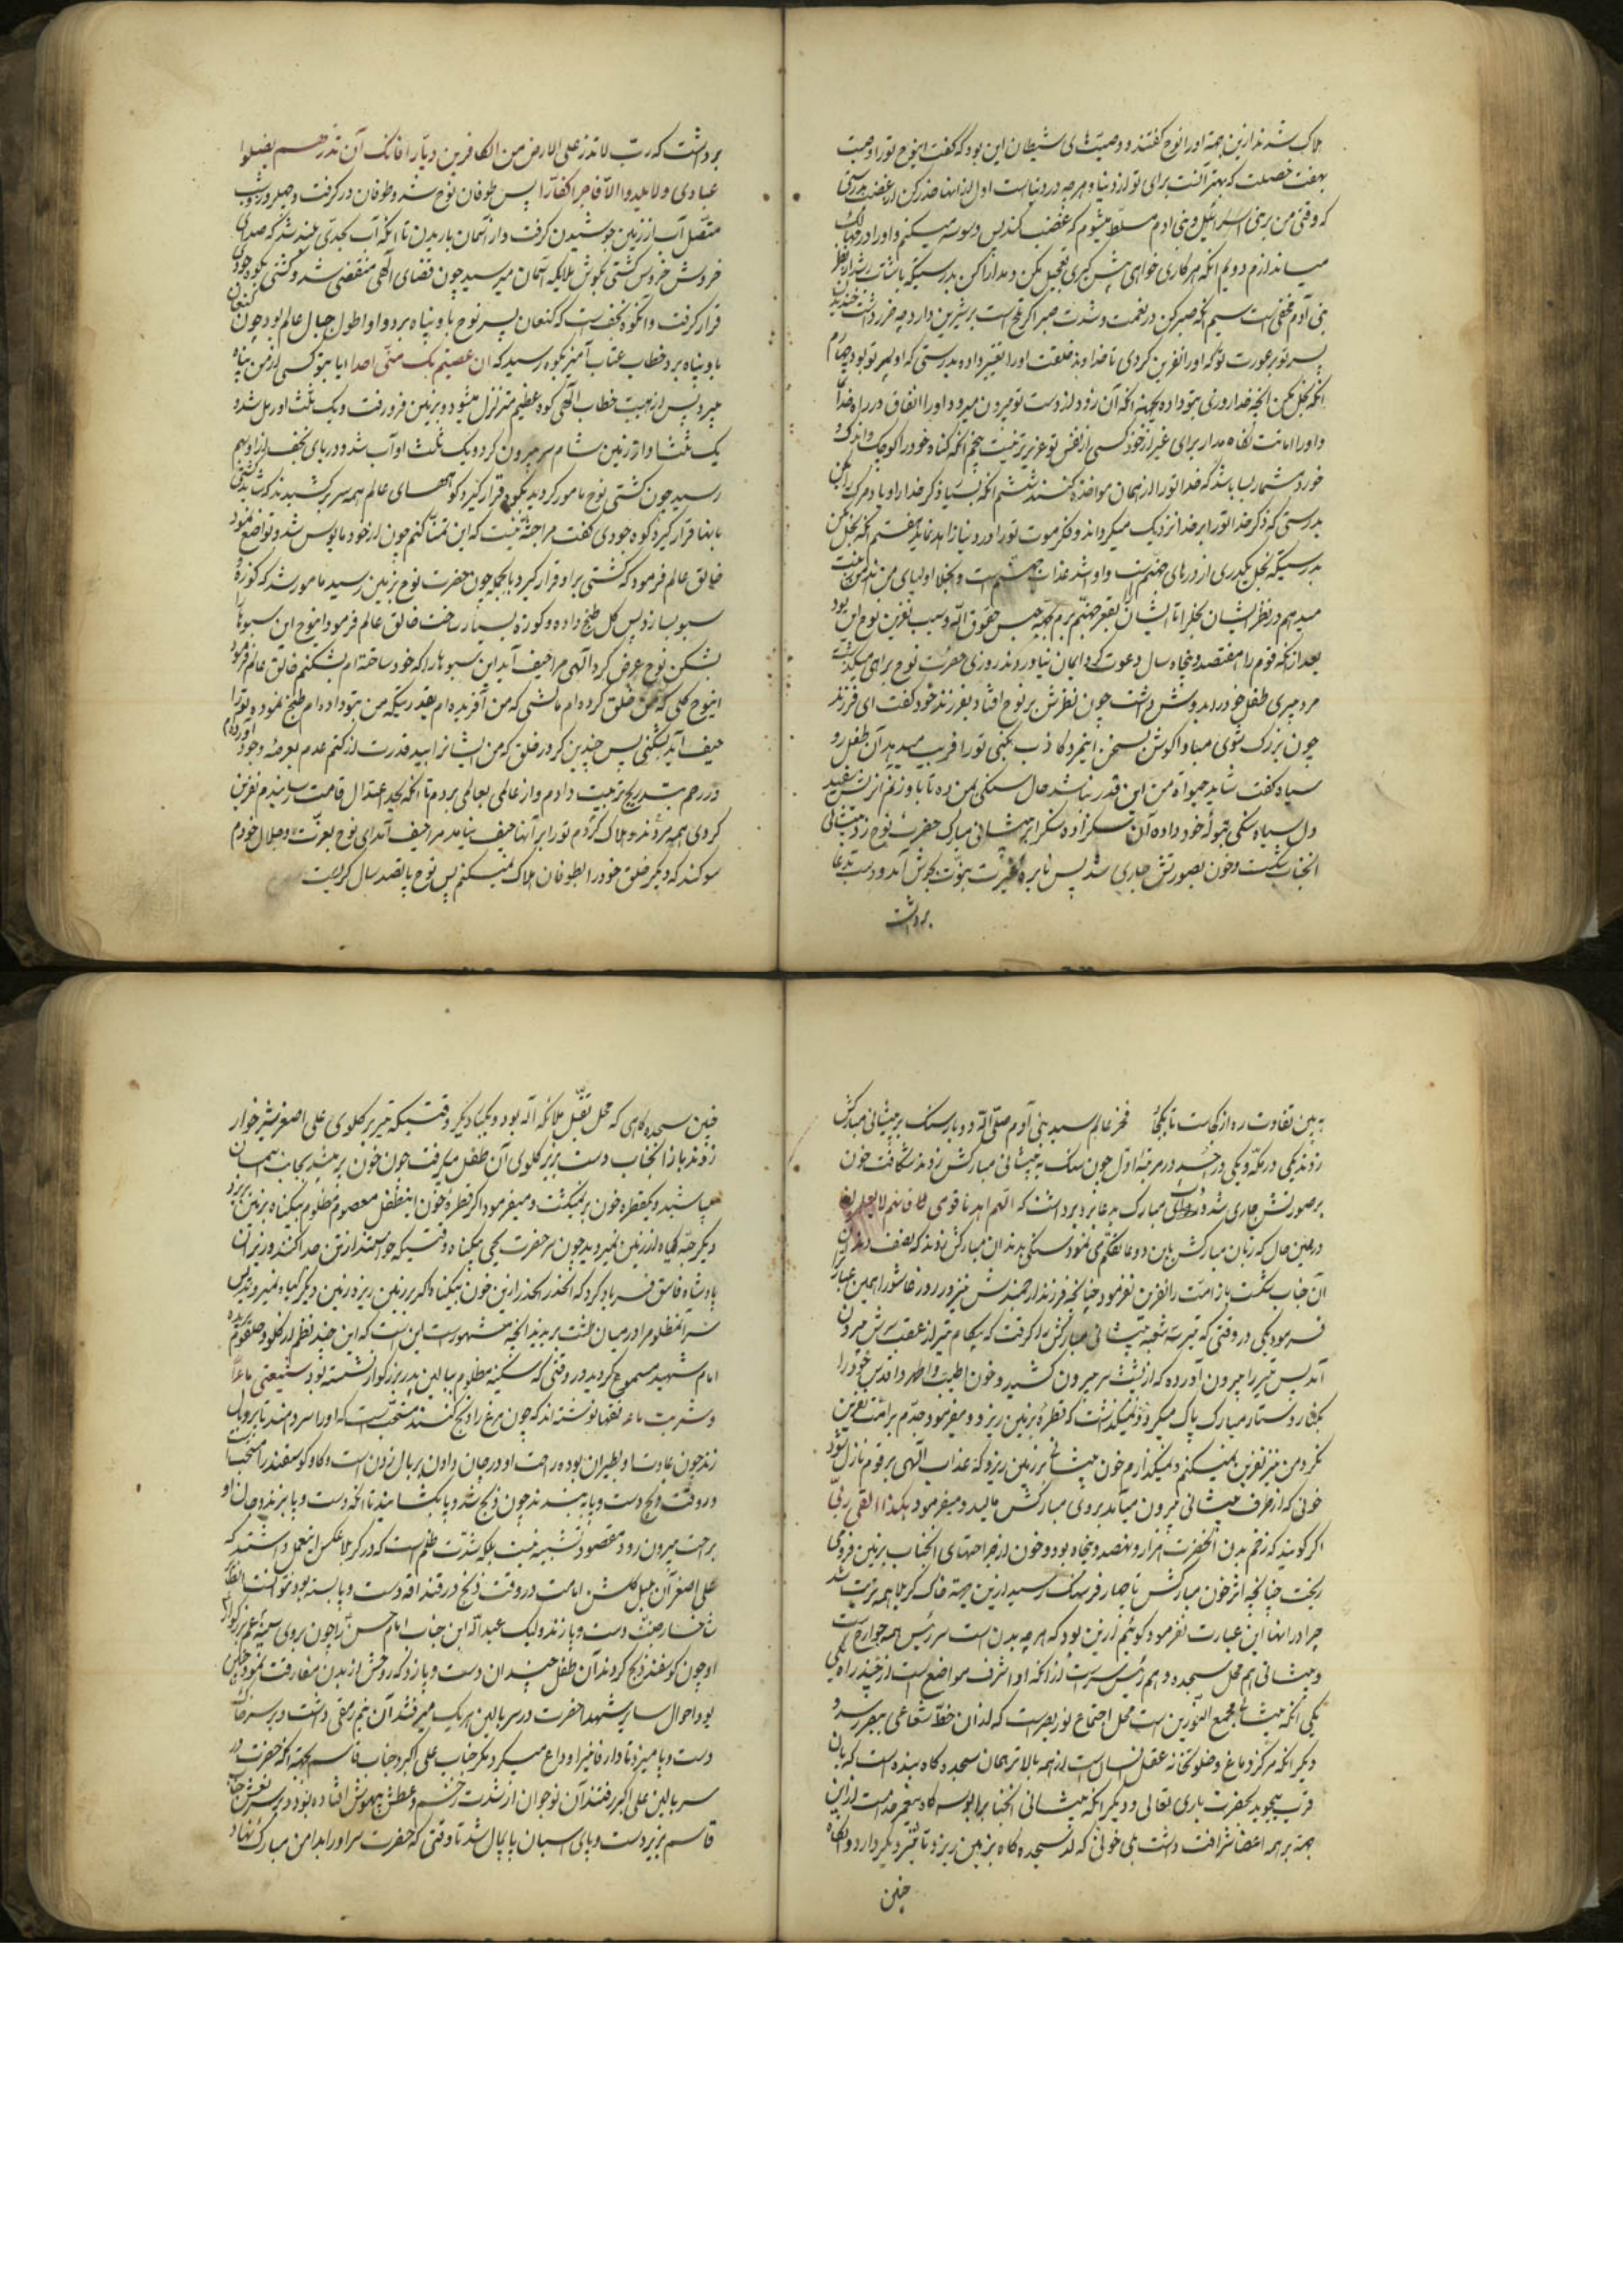 هلاک شدند ازین جهة اورا نوح کفتند و وصیتهای شیطان این بود که کفت اینوح تورا وصیت
بهفت خصلت که بهتر است برای تو از دنیا و هرچه در دنیاست اول از اینها حذر کن از غضب بدرستی
که وقتی من بر بنی اسرائیل و بنی ادم مسلط میشوم که غضب کنند پس وسوسه میکنم و اورا در
میاندازم دویم انکه هر کاری خواهی پیش کیری تعجیل مکن و مدارا کن بدرستیکه باشتاب
بنی آدم مخفی است سیم انکه صبر کن در نعمت و شدت صبر اکر تلخ است بر شیرین دارد
پسر تو بر عورت تو که اورا نفرین کردی تا خداوند خلقت اورا تغییر داده بدرستی که او پسر تو بود چهارم
انکه بخل مکن انچه خدا روزی بتو داده بجهة انکه آن زود از دست تو بیرون میرود و اورا انفاق در راه خدا
و اورا امانت نکاه مدار برای غیر از خود کسی از نفس تو عزیزتر نیست پنجم انکه کناه خود را کوچک و اندک و
خورد مشمار بسا باشد که خدا تورا از همان مواخذه کند ششم انکه بسیار ذکر خدا را و یاد مرک را بکن
بدرستی که ذکر خدا تورا بر خدا نزدیک میکرداند و فکر موت تورا در دنیا زاهد نماید هفتم انکه بخل مکن
بدرستیکه بخل یکدری از درهای جهنم است و او اشد عذاب جهنم است و بخلا اولیای من
میدهم در نظر ایشان بخل را تا ایشان بقعر جهنم برم بجهة حبس حقوق الله و سبب نفرین نوح این بود
بعد از انکه قوم را هفتصد و پنجاه سال دعوت کرد ایمان نیاوردند روزی حضرت نوح براهی میکذشت
مرد پیری طفل خود را بدوش داشت چون نظرش بر نوح افتاد بفرزند خود کفت ای فرزند
چون بزرک شوی مبادا کوش بسخن اینمرد کاذب بکنی تورا فریب میدهد آن طفل رو
سیاه کفت شاید حیوة من این قدر نباشد حال سنکی بمن ده تا باو زنم انمرد
دل سیاه سنکی بتوله خود داده آن سنک را بر پیشانی مبارک حضرت نوح زد پیشانی
انجناب شکست و خون بصورتش جاری شد پس نایره غیرت نبوت بجوش آمد و دست بدعا
برداشت
برداشت که رب لا تذر علی الارض من الکافرین دیارا فانک ان تذرهم یضلوا
عبادی و لا یلدوا الا فاجرا کفارا پس طوفان نوح شد و طوفان در کرفت و چهل روز و شب
متصل آب از زمین جوشیدن کرفت و از آسمان باریدن تا انکه آب بحدی بلند شد که صدای
خروش خروس کشتی بکوش ملایکه آسمان میرسید چون قضای الهی منقضی شد و کشتی بکوه جودی
قرار کرفت و انکوه نجف است که کنعان پسر نوح باو پناه برد و او اطول جبال عالم بود چون کنعان
باو پناه برد خطاب عتاب آمیز بکوه رسید که ان عصیتم بک منی احدا ایا بتو کسی از من پناه
میبرد پس از هیبت خطاب الهی کوه عظیم متزلزل میشود و بزمین فرو رفت و یک ثلث او رمل شد و
یک ثلث او از زمین شام سر بیرون کرد و یک ثلث او آب شد و دریای نجف از او بهم
رسید چون کشتی نوح مامور کردید بکوه قرار کیرد کوههای عالم همه سر برکشیدند که شاید کشتی
بانها قرار کیرد کوه جودی کفت مرا چه نسبت که این تمنا کنم چون از خود مایوس شد و تواضع نمود
خالق عالم فرمود که کشتی بر او قرار کیرد بالجمله چون حضرت نوح بزمین رسید مامور شد که کوزه و
سبو بسازد پس کل طبخ داده و کوزه بسیار ساخت خالق عالم فرمود اینوح این سبوها را
بشکن نوح عرض کرد الهی مرا حیف آید این سبوها را که خود ساخته ام بشکنم خالق عالم فرمود
اینوح کلی که من خلق کرده ام باتشی که من آفریده ام بقدرتیکه من بتو داده ام طبخ نموده تورا
حیف آید بشکنی پس چندین کرور خلق که من ایشانرا بید قدرت از کتم عدم بعرصه وجود آوردم
و در رحم بتدریج تربیت دادم و از عالمی بعالمی بردم تا انکه بحد اعتدال قامت رسانیدم نفرین
کردی همه مردند و هلاک کردم تورا بر آنها حیف نیامد مرا حیف آمد ای نوح بعزت و جلال خودم
سوکند که دیکر خلق خود را بطوفان هلاک نمیکنم پس نوح پانصد سال کریست
به بین تفاوت ره از کجاست تا بکجا فخر عالم سید بنی آدم صلی الله دو بار سنک بر پیشانی مبارکش
زدند یکی در مکه و یکی در احد در مرتبه اول چون سنک به پیشانی مبارکش زدند شکافت خون
بر صورتش جاری شد و مبارک بدعا برداشت که اللهم اهد قوی فانهم لا یعلمون
در همین حال که زبان مبارکش باین دعا تکلم می نمود سنکی بدندان مبارکش زدند که نصف دندان
آن جناب شکست باز امت را نفرین نفرمود چنانچه فرزند ارجمندش نیز در روز عاشورا همین عبارت را
فرمود یکی در وقتی که تیر سه شعبه پیشانی مبارکش را کرفت که پیکام تیر از عقب سرش بیرون
آمد پس تیر را بیرون آورده که از پشت سر بیرون کشید و خون اطیب و اطهر و اقدس خود را
بکنار دستار مبارک پاک میکرد و نمیکذاشت که قطره بزمین ریزد و میفرمود جدم بر امت نفرین
نکرد من نیز نفرین نمیکنم و نمیکذارم خون پیشانی بر زمین ریزد که عذاب الهی بر قوم نازل شود
خونی که از طرف پیشانی بیرون میآمد بروی مبارکش مالید و میفرمود هکذا القی ربی
اکر کویند که زخم بدن انحضرت هزار و نهصد و پنجاه بود و خون از جراحتهای انجناب بزمین فرو می
ریخت چنانچه اثر خون مبارکش تا چهار فرسنک رسید ازین جهة خاک کربلا همه تربت شد
چرا در انها این عبارت نفرمود کوئیم از این بود که هرچه بدن است سر رئیس همه جوارح است
و پیشانی هم محل سجده و هم رئیس سر است از انکه او اشرف مواضع است از چند راه
یکی انکه پیشانی مجمع النورین است محل اجتماع نور بصر است که از آن خط شعاعی بمبصر رسد و
دیکر انکه مرکز دماغ و جلوتخانه عقل انسان است از همه بالاتر همان سجده کاه بنده است که بان
قرب میجوید بحضرت باری تعالی و دیکر انکه پیشانی انجناب را بوسه کاه پیغمبر خداست از این
جهة بر همه اعضا شرافت داشت بلی خونی که از سجده کاه بزمین ریزد تاثیر دیکر دارد
چنین
چنین سجده کاهی که محل تقبل ملائکة الله بود و یکباد دیکر وقتیکه تیر بر کلوی علی اصغر شیرخوار
زدند باز انجناب دست بزیر کلوی آن طفل میکرفت چون خون پر میشد بجانب آسمان
میپاشید و یکقطره خون بر نمیکشت و میفرمود اکر قطره خون اینطفل معصوم مظلوم بیکناه بزمین ریزد
دیکر حبه کیاه از زمین نمیروید چون سر حضرت یحیی بیکناه وقتیکه خواستند از تن جدا کنند وزیر ان
پادشاه فاسق فریاد کرد که الحذر الحذر از این خون بیکناه که اکر بر زمین ریزد زمین دیکر کیاه نمیروید پس
سر انمظلوم را در میان طشت بریدند انچه مشهور است این است که این چند نظم از کلو و حلقوم بریده
امام شهید مسموع کردید در وقتی که سکینه مظلوم ببالین پدر بزرکوار نشسته بود شیعتی ما ان
و شربت ماء فقها نوشته اند که چون مرغ را ذبح کنند مستحب است که اورا سر دهند تا پر و بال
زند چون عادت او بطیران بوده راحت او در جان دادن پر بال زدن است و کاو و کوسفند را مستحب
در وقت ذبح دست و پا به بندند چون ذبح شد و پا بکشانید تا انکه دست و پا بزند و جان او
براحت بیرون رود مقصود تشبیه نیست بلکه شدت ظلم است که در کربلا عکس اینعمل داشتند که
علی اصغر آن بلبل کلشن امامت در وقت ذبح در قنداقه دست و پا بسته بود نتوانست
دست و پا زند و لیک عبدالله ابن جناب امام حسن را چون بروی سینه عم بزرکوار
او چون کوسفند ذبح کردند آن طفل چندان دست و پا زد که روحش از بدن مفارقت نمود
بود احوال سایر شهدا حضرت در سر بالین هریک میرفتند آن نیم رمقی داشت و بر سر خاک
دست و پا میزد تا دار فانیرا وداع میکرد دیکر جناب علی اکبر و جناب قاسم بجهة انکه حضرت در
سر بالین علی اکبر رفتند آن نوجوان از شدت زخم و عطش بیهوش افتاده بود و بر سر نعش جناب
قاسم بزیر دست و پای اسبان پایمال شد تا وقتی که حضرت سر اورا بدامن مبارک نهاد